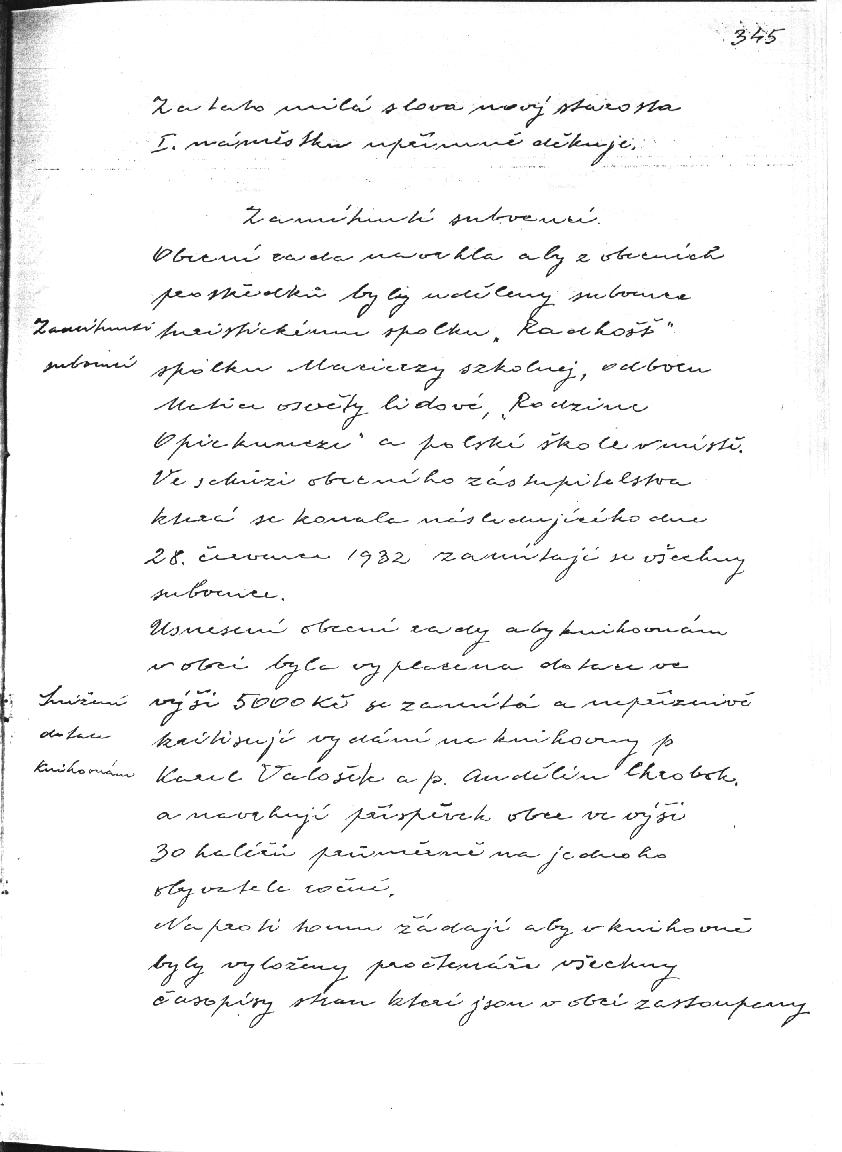 345
Za tato milá slova nový starosta
I. náměstku upřímně děkuje.
Zamítnutí subvencí.
Obecní rada navrhla aby z obecních
prostředků byly uděleny subvence
Zamítnutí
subvencí
turistickému spolku „Radhošť“
spolku Macierzy szkolnej, odboru
Matice osvěty lidové, „Rodzine
Opiekuncze“ a polské škole v místě.
Ve schůzi obecního zástupitelstva
která se konala následujícího dne
28. července 1932 zamítají se všechny
subvence.
Usnesení obecní rady aby knihovnám
v obci byla vyplacena dotace ve
Snížení
dotace
knihovnám
výši 5000 Kč se zamítá a nepříznivě
kritisují vydání na knihovny p
Karel Valošek a p. Andělín Chrobok.
a navrhují příspěvek obce ve výši
30 haléřů průměrně na jednoho
obyvatele ročně.
Naproti tomu žádají aby v knihovně
byly vyloženy pro čtenáře všechny
časopisy stran které jsou v obci zastoupeny